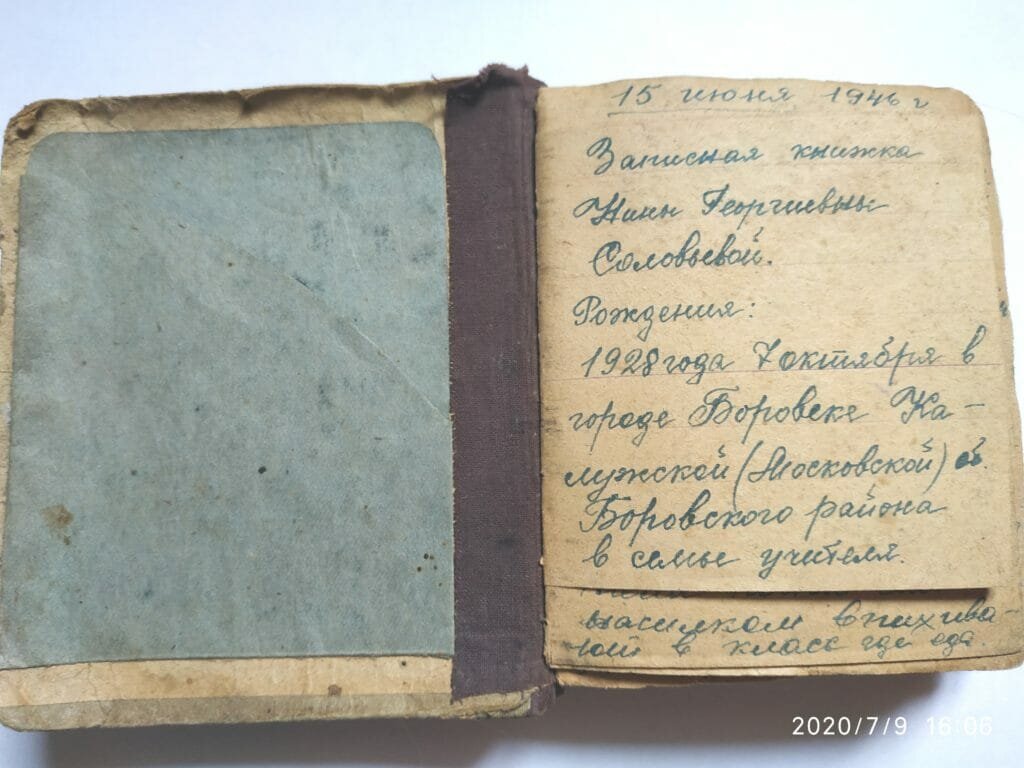 15 июня 1946 г
Записная книжка
Нины Георгиевны
Соловьевой.
Рождения:
1928 года 7 октября в
городе Боровске Ка-
лужской (Московской) об.
Боровского района
в семье учителя.
насилком впихива-
ют в класс где
2020/7/9 16:06